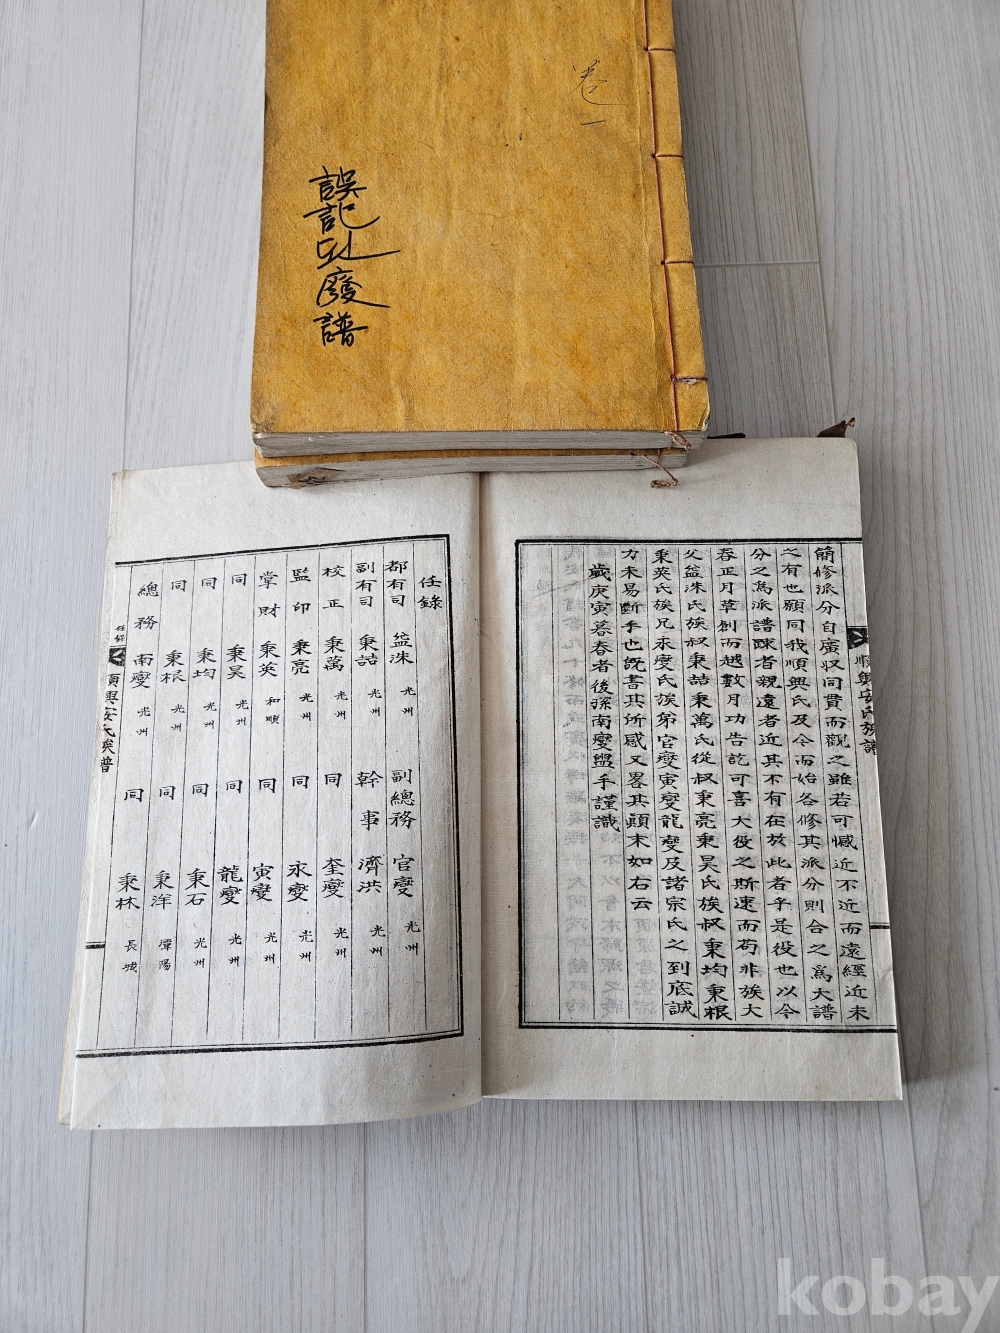 卷一
誤記로廢譜
簡修派分自廣収同貫而觀之雖若可憾近不近而遠經近未
之有也願同我順興氏及今而始各修其派分則合之爲大譜
分之爲派譜踈者親遠者近其不有在於此者乎是役也以今
春正月草創而越數月功告訖可喜大役之斯速而苟非族大
父益洙氏族叔秉喆秉萬氏從叔秉亮秉昊氏族叔秉均秉根
秉英氏族兄永燮氏族弟官燮寅燮龍燮及諸宗氏之到底誠
力未易斷手也旣書其所感又畧其顚末如右云
歲庚寅暮春者後孫南燮盥手謹識
順興安氏族譜
任錄
都有司 益洙 光州 副總務 官燮 光州
副有司 秉喆 光州 幹事 濟洪 光州
校正 秉萬 光州 同 奎燮 光州
監印 秉亮 光州 同 永燮 光州
掌財 秉英 和順 同 寅燮 光州
同 秉昊 光州 同 龍燮 光州
同 秉均 光州 同 秉石 光州
同 秉根 光州 同 秉洋 潭陽
總務 南燮 光州 同 秉林 長城
任錄
順興安氏族譜
kobay